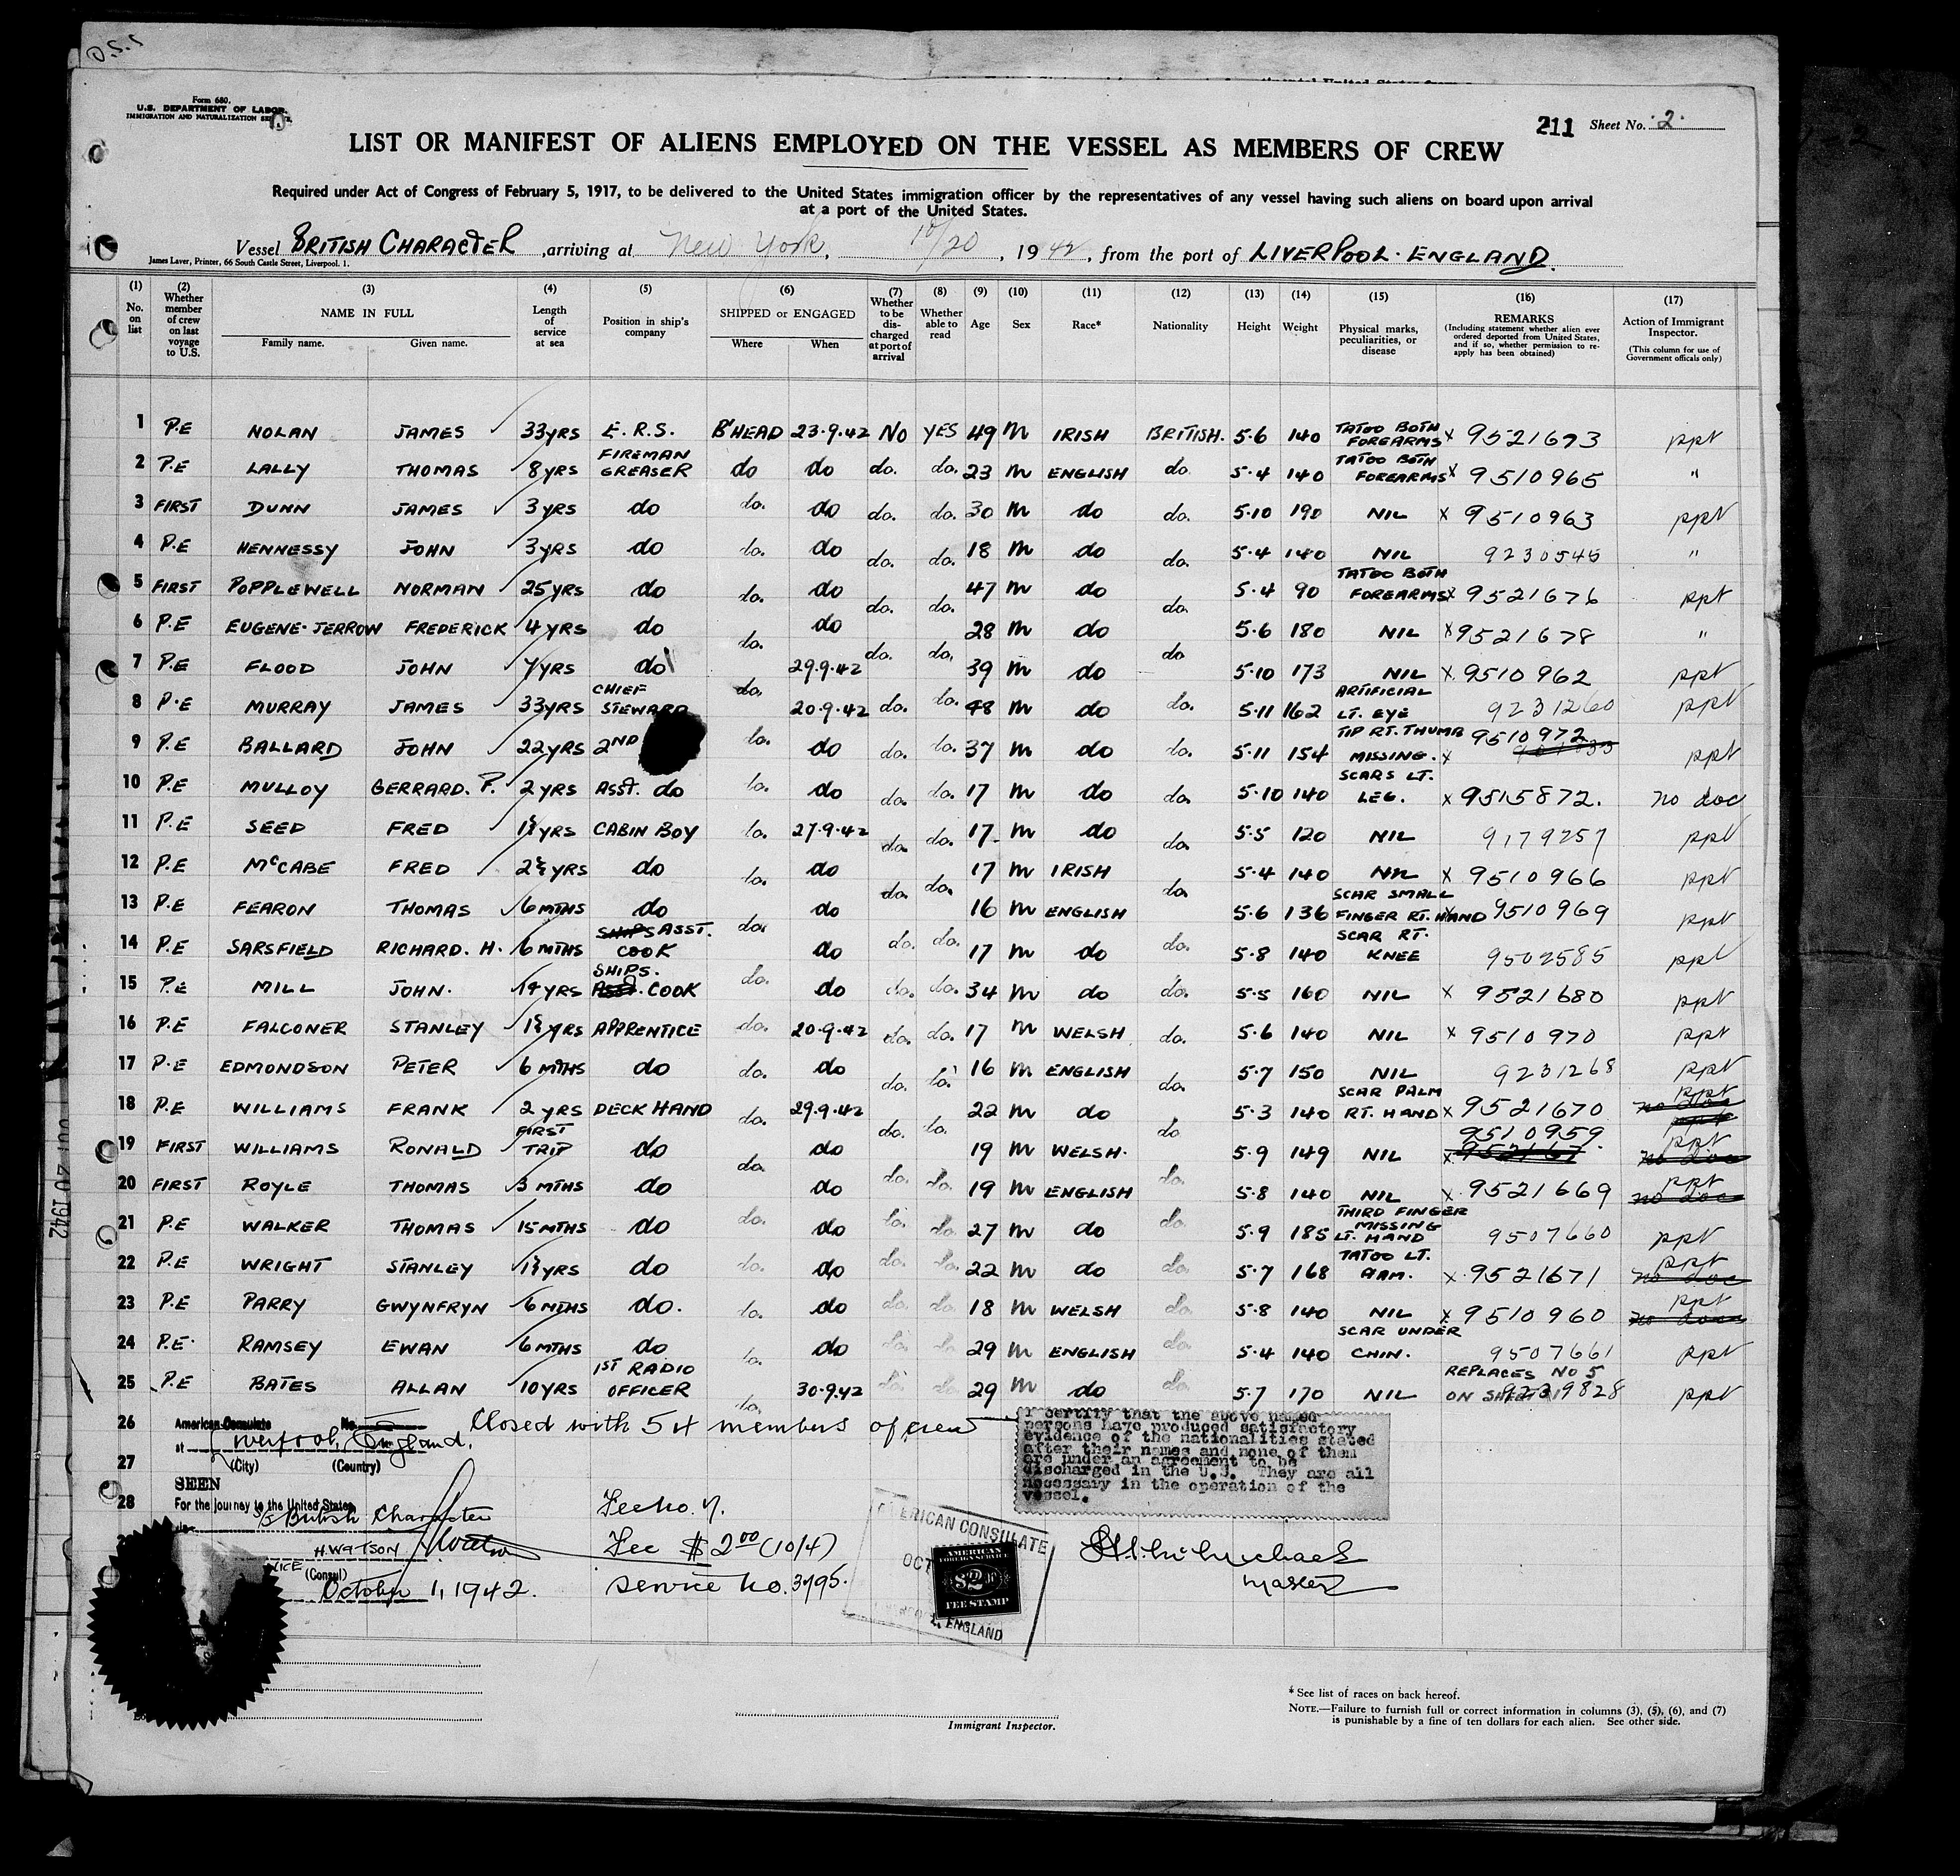 O.S.S
Form 680.
U.S. DEPARTMENT OF LABOR,
IMMIGRATION AND NATURALIZATION
211 Sheet No. 2.
LIST OR MANIFEST OF ALIENS EMPLOYED ON THE VESSEL AS MEMBERS OF CREW
Required under Act of Congress of February 5, 1917, to be delivered to the United States immigration officer by the representatives of any vessel having such aliens on board upon arrival
at a port of the United States.
Vessel BRITISH CHARACTER, arriving at New York, 10/20, 1942, from the port of LIVERPOOL. ENGLAND.
James Laver, Printer, 66 South Castle Street, Liverpool. 1.
(1) No. on list (2) Whether member of crew on last voyage to U.S. (3) NAME IN FULL Family name. Given name. (4) Length of service at sea (5) Position in ship's company (6) SHIPPED or ENGAGED Where When (7) Whether to be discharged at port of arrival (8) Whether able to read (9) Age (10) Sex (11) Race* (12) Nationality (13) Height (14) Weight (15) Physical marks, peculiarities, or disease (16) REMARKS (Including statement whether alien ever ordered deported from United States, and if so, whether permission to re-apply has been obtained) (17) Action of Immigrant Inspector. (This column for use of Government officals only)
1 P.E NOLAN JAMES 33YRS E.R.S. B'HEAD 23.9.42 NO YES 49 M IRISH BRITISH. 5.6 140 TATOO BOTH FOREARMS x 9521673 ppt
2 P.E LALLY THOMAS 8YRS FIREMAN GREASER do do do. do. 23 M ENGLISH do 5.4 140 TATOO BOTH FOREARMS x 9510965 "
3 FIRST DUNN JAMES 3YRS do do. do do. do. 30 M do do. 5.10 190 NIL x 9510963 ppt
4 P.E HENNESSY JOHN 3YRS do do. do do. do. 18 M do do. 5.4 140 NIL 9230545 "
5 FIRST POPPLEWELL NORMAN 25YRS do do. do do. do. 47 M do do. 5.4 90 TATOO BOTH FOREARMS x 9521676 ppt
6 P.E EUGENE-JERROW FREDERICK 4YRS do do. do do. do. 28 M do do 5.6 180 NIL x 9521678 "
7 P.E FLOOD JOHN 7YRS do do. 29.9.42 39 M do 5.10 173 NIL x. 9510962 ppt
8 P.E MURRAY JAMES 33YRS CHIEF STEWARD 20.9.42 do. do. 48 M do do. 5.11 162 ARTIFICIAL LT. EYE 9231260 ppt
9 P.E BALLARD JOHN 22YRS 2ND do. do do. do. 37 M do do. 5.11 154 TIP RT. THUMB MISSING. x 9510972 ppt
10 P.E MULLOY GERRARD. P. 2YRS ASST. do do. do do. do. 17 M do do. 5.10 140 SCARS LT. LEG. x 9515872. no doc
11 P.E SEED FRED 1½YRS CABIN BOY do. 27.9.42 do. do. 17 M do do. 5.5 120 NIL 9179257 ppt
12 P.E McCABE FRED 2½YRS do do. do do. do. 17 M IRISH do. 5.4 140 NIL x 9510966 ppt
13 P.E FEARON THOMAS 6 MTHS do do. do 16 M ENGLISH 5.6 136 SCAR SMALL FINGER RT. HAND 9510969 ppt
14 P.E SARSFIELD RICHARD. H. 6 MTHS SHIPS ASST. COOK do do. do. 17 M do do. 5.8 140 SCAR RT. KNEE 9502585 ppt
15 P.E MILL JOHN. 14YRS SHIPS. ASST. COOK do. do do. do. 34 M do do. 5.5 160 NIL x 9521680 ppt
16 P.E FALCONER STANLEY 1½YRS APPRENTICE do. 20.9.42 do. do. 17 M WELSH do. 5.6 140 NIL x 9510970 ppt
17 P.E EDMONDSON PETER 6 MTHS do do. do do. do. 16 M ENGLISH do. 5.7 150 NIL 9231268 ppt
18 P.E WILLIAMS FRANK 2YRS DECK HAND do. 29.9.42 do. do. 22 M do do 5.3 140 SCAR PALM RT. HAND x 9521670 ppt no doc
19 FIRST WILLIAMS RONALD FIRST TRIP do do. do 19 M WELSH. 5.9 149 NIL 9510959 x 952167 ppt no doc
20 FIRST ROYLE THOMAS 3 MTHS do do do. do. 19 M ENGLISH do. 5.8 140 NIL x. 9521669 ppt no doc
21 P.E WALKER THOMAS 15 MTHS do do. do do. do. 27 M do do. 5.9 185 THIRD FINGER MISSING LT. HAND 9507660 ppt
22 P.E WRIGHT STANLEY 1½YRS do do. do do. do. 22 M do do. 5.7 168 TATOO LT. ARM. x. 9521671 ppt no doc
23 P.E PARRY GWYNFRYN 6 MTHS do. do. do do. do. 18 M WELSH do. 5.8 140 NIL x 9510960 ppt no doc
24 P.E. RAMSEY EWAN 6 MTHS do do. do do. do. 29 M ENGLISH do. 5.4 140 SCAR UNDER CHIN. 9507661 ppt
25 P.E BATES ALLAN 10YRS 1ST RADIO OFFICER do. 30.9.42 do. do. 29 M do do. 5.7 170 NIL REPLACES NO 5 ON SHEET 9239828 ppt
26 American Consulate No. Closed with 54 members of crew
at Liverpool, England.
27 (City) (Country)
SEEN
28 For the journey to the United States
S/S British Character
H. WATSON
VICE (Consul)
October 1, 1942.
Fee No. 7.
Fee $2.00 (10/4)
Service No. 3795.
I certify that the above named
persons have produced satisfactory
evidence of the nationalities stated
after their names and none of them
are under an agreement to be
discharged in the U.S. They are all
necessary in the operation of the
vessel.
AMERICAN CONSULATE
OCT
ENGLAND
AMERICAN
FOREIGN SERVICE
$2
FEE STAMP
Master
OCT 20 1942
Immigrant Inspector.
*See list of races on back hereof.
NOTE.—Failure to furnish full or correct information in columns (3), (5), (6), and (7)
is punishable by a fine of ten dollars for each alien. See other side.